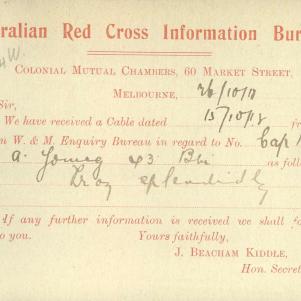 ralian Red Cross Information Bur
4W.
Colonial Mutual Chambers, 60 Market Street,
Melbourne, 26/10/17
Sir,
We have received a Cable dated 15/10/17 fr
n W. & M. Enquiry Bureau in regard to No. Cap
A. Young 43 Bn as follo
Prog splendidly
If any further information is received we shall fo
to you. Yours faithfully,
J. Beacham Kiddle,
Hon. Secret